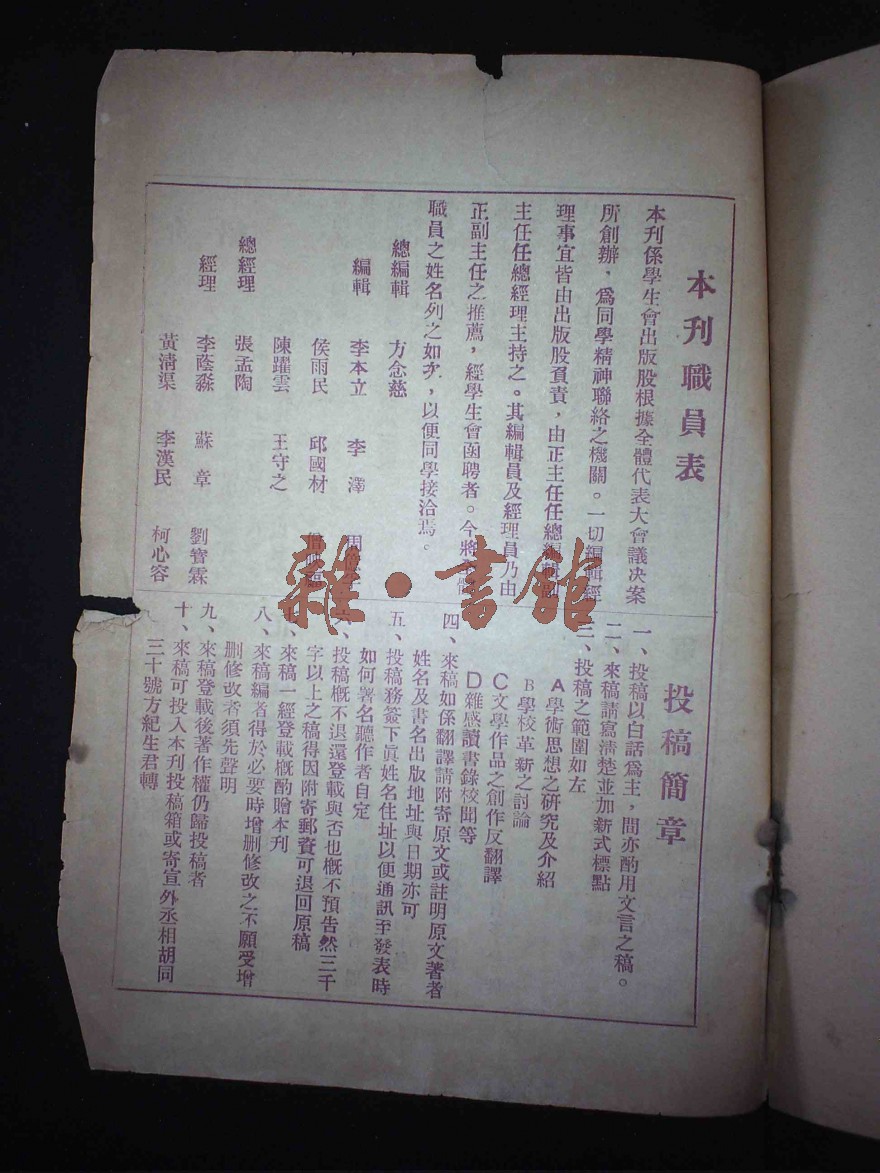 本刊職員表
本刊係學生會出版股根據全體代表大會議决案
所創辦，爲同學精神聯絡之機關。一切編輯經
理事宜皆由出版股負責，由正主任任總編輯副
主任任總經理主持之。其編輯員及經理員乃由
正副主任之推薦，經學生會函聘者。今將
職員之姓名列之如次，以便同學接洽焉。
總編輯 方念慈
編輯 李本立 李澤 周
侯雨民 邱國材
陳躍雲 王守之
總經理 張孟陶
經理 李蔭淼 蘇章 劉寶霖
黃淸渠 李漢民 柯心容
投稿簡章
一、投稿以白話爲主，間亦酌用文言之稿。
二、來稿請寫淸楚並加新式標點
三、投稿之範圍如左
A學術思想之研究及介紹
B學校革新之討論
C文學作品之創作反翻譯
D雜感讀書錄校聞等
四、來稿如係翻譯請附寄原文或註明原文著者
姓名及書名出版地址與日期亦可
五、投稿務簽下眞姓名住址以便通訊至發表時
如何署名聽作者自定
六、投稿槪不退還登載與否也槪不預告然三千
字以上之稿得因附寄郵資可退回原稿
七、來稿一經登載槪酌贈本刊
八、來稿編者得於必要時增删修改之不願受增
删修改者須先聲明
九、來稿登載後著作權仍歸投稿者
十、來稿可投入本刊投稿箱或寄宣外丞相胡同
三十號方紀生君轉
雜·書館